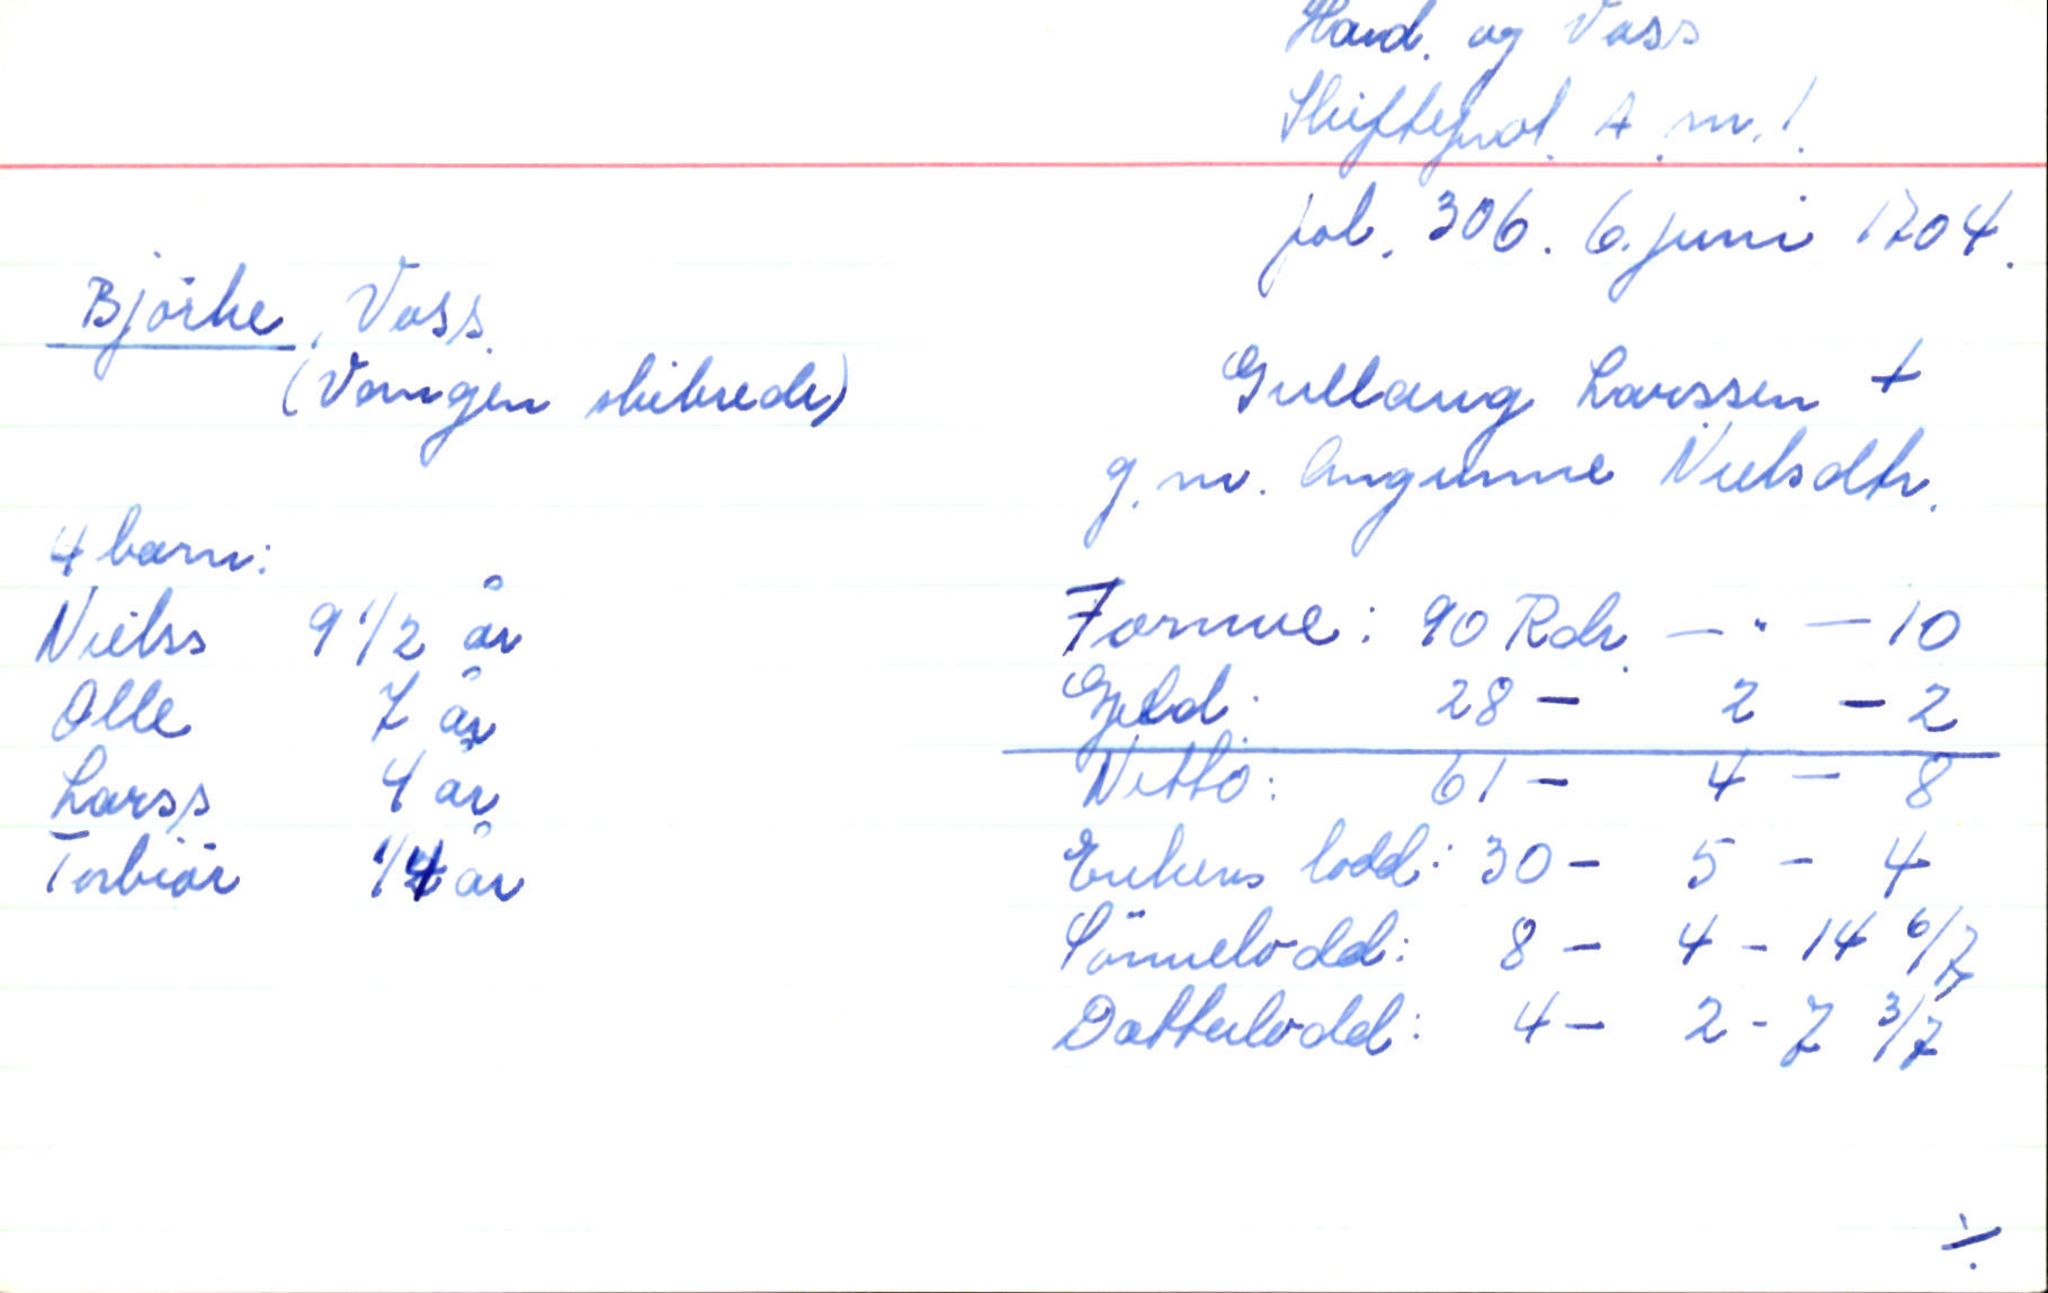 Hard. og Voss
Skifteprot. A nr. 1.
fol. 306. 6. juni 1704.
Björke, Voss.
(Vangen skibrede)
Gullaug Larssen +
g. m. Angunne Nielsdtr.
4 barn:
Nielss 9 1/2 år
Olle 7 år
Larss 4 år
Torbiör 1/4 år
Formue: 90 Rdr. — " — 10
Gjeld: 28 — 2 — 2
Netto: 61 — 4 — 8
Enkens lodd: 30 — 5 — 4
Sönnelodd: 8 — 4 — 14 6/7
Datterlodd: 4 — 2 - 7 3/7